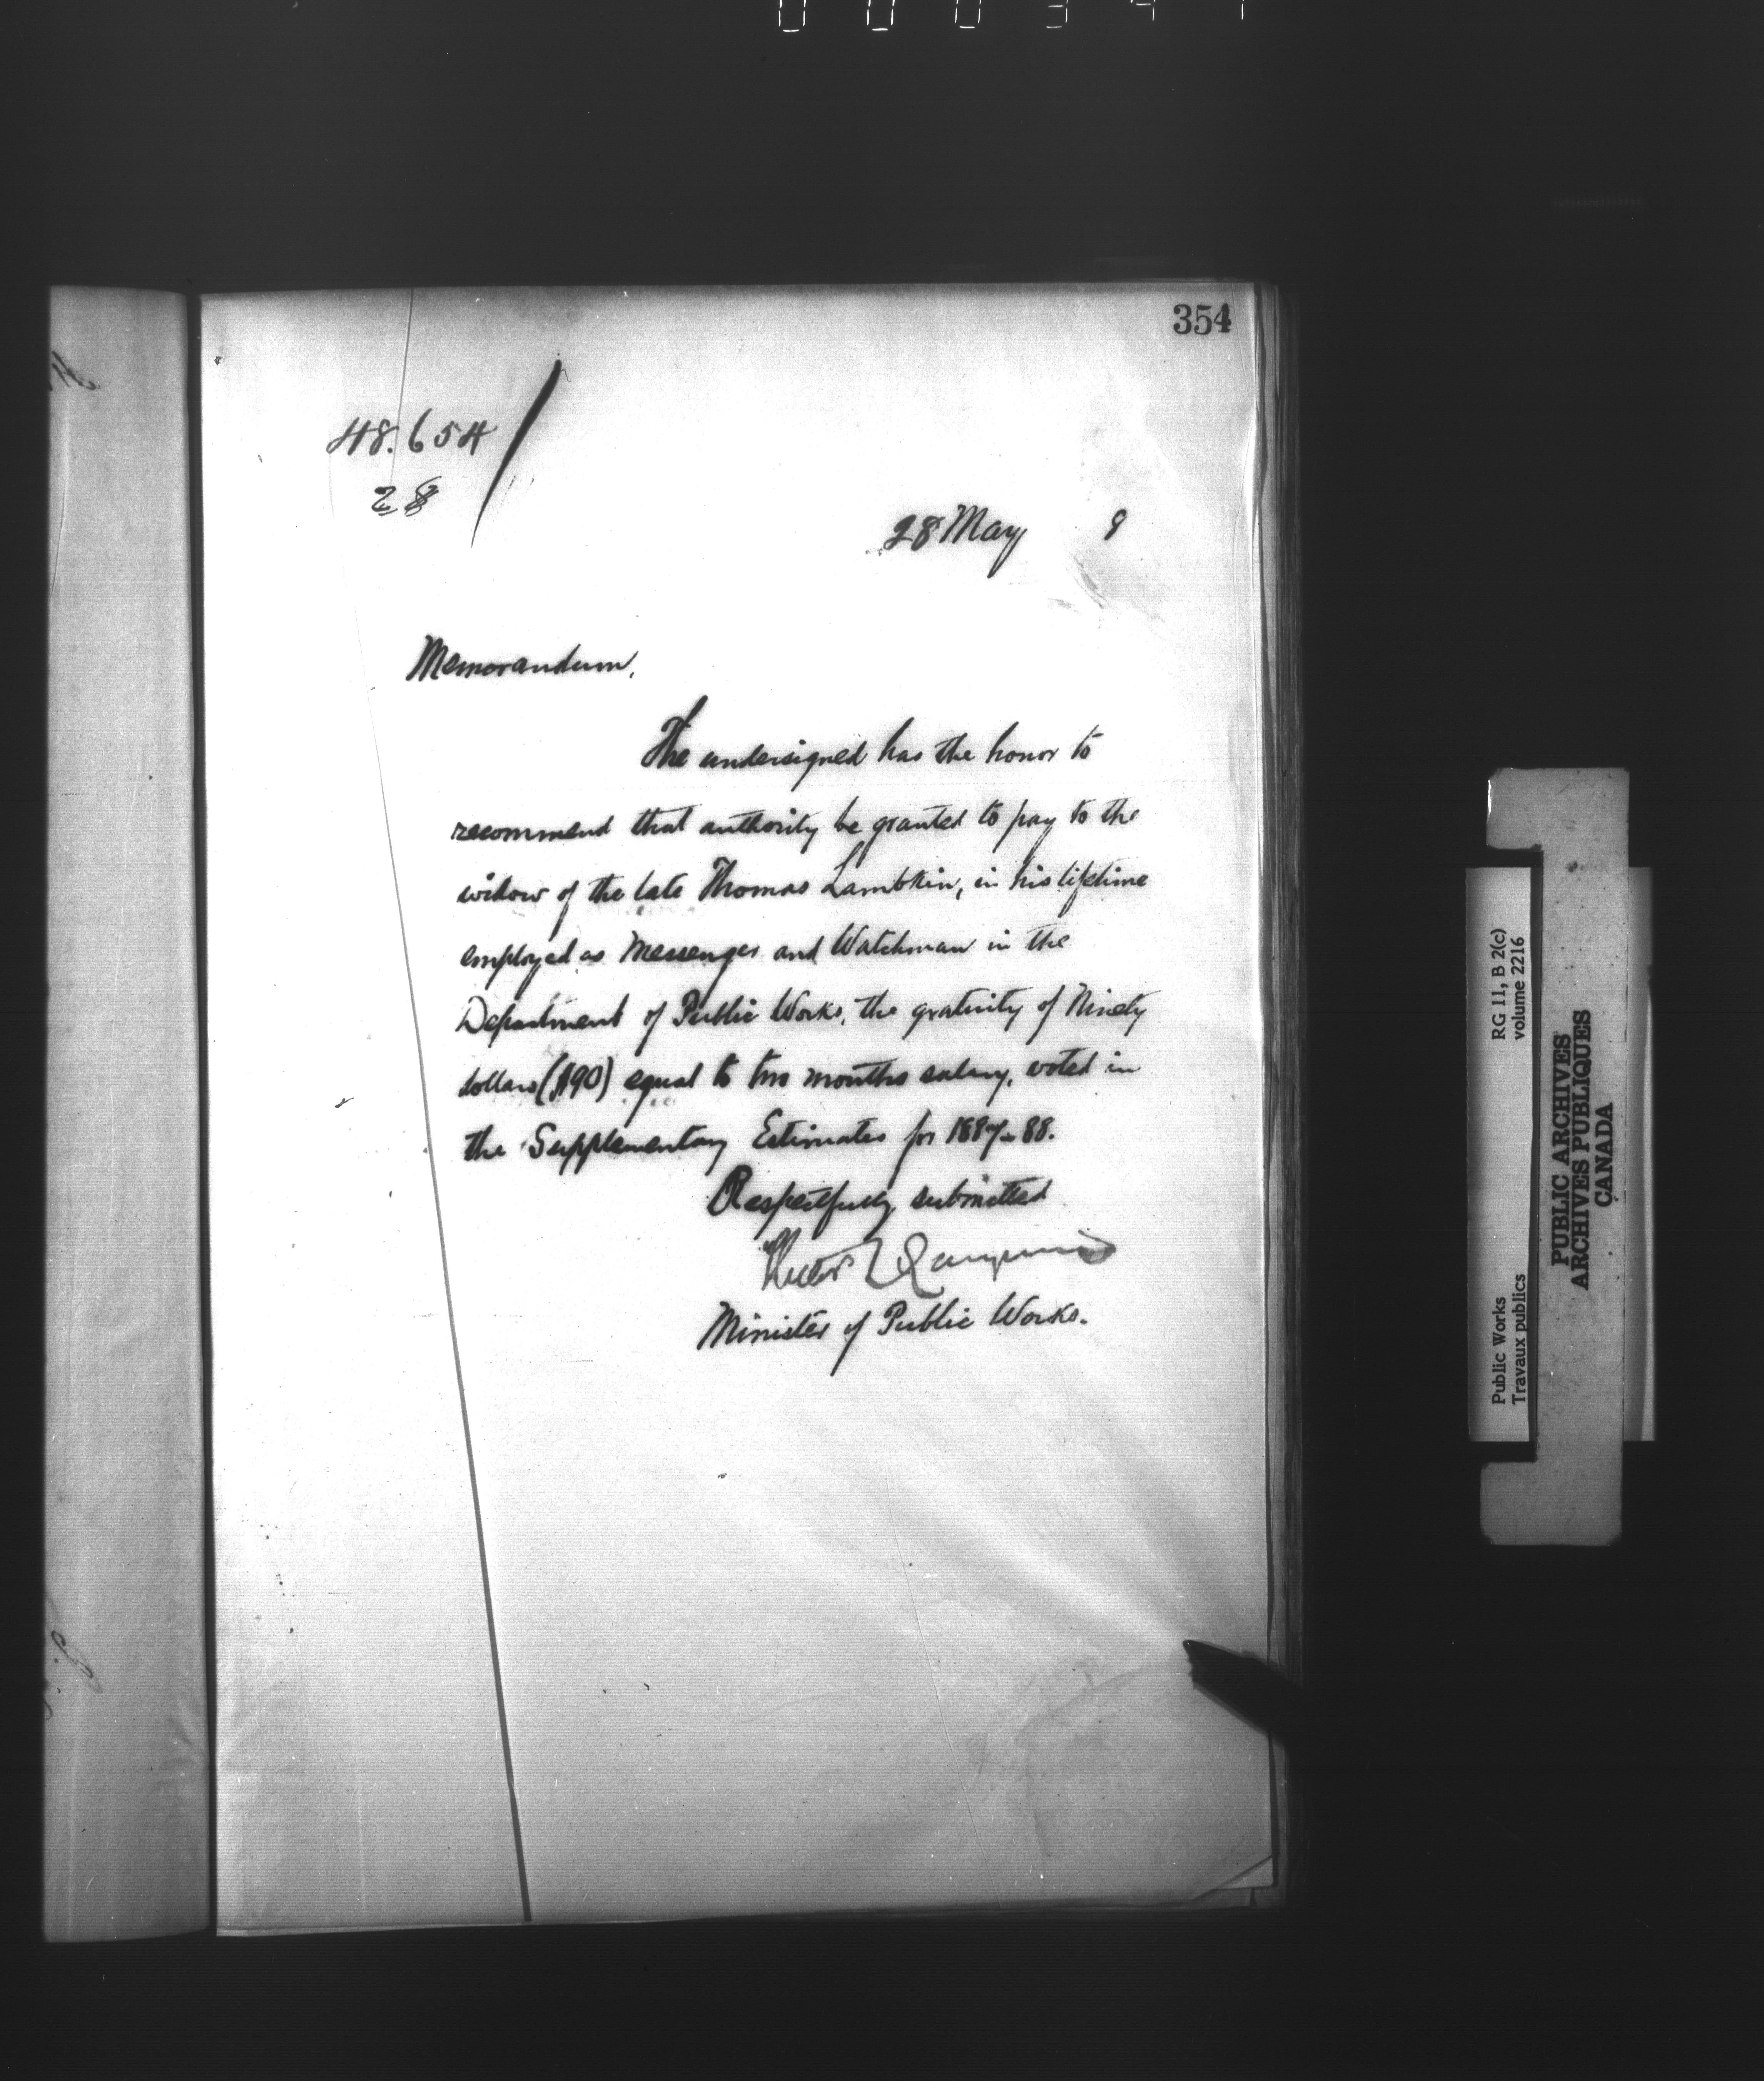 354
48.654
28
28 May 8
Memorandum.
The undersigned has the honor to
recommend that authority be granted to pay to the
widow of the late Thomas Lambkin, in his lifetime
employed as Messenger and Watchman in the
Department of Public Works, the gratuity of Ninety
dollars ($90) equal to two months salary, voted in
the Supplementary Estimates for 1887-88.
Respectfully submitted
Hector L Langevin
Minister of Public Works.
Public Works
Travaux publics
RG 11, B 2(c)
volume 2216
PUBLIC ARCHIVES
ARCHIVES PUBLIQUES
CANADA